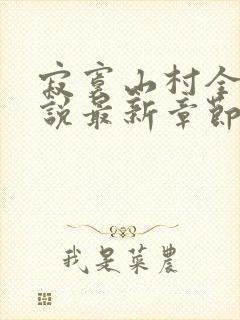 寂寞山村全
說最新章節
我是菜農